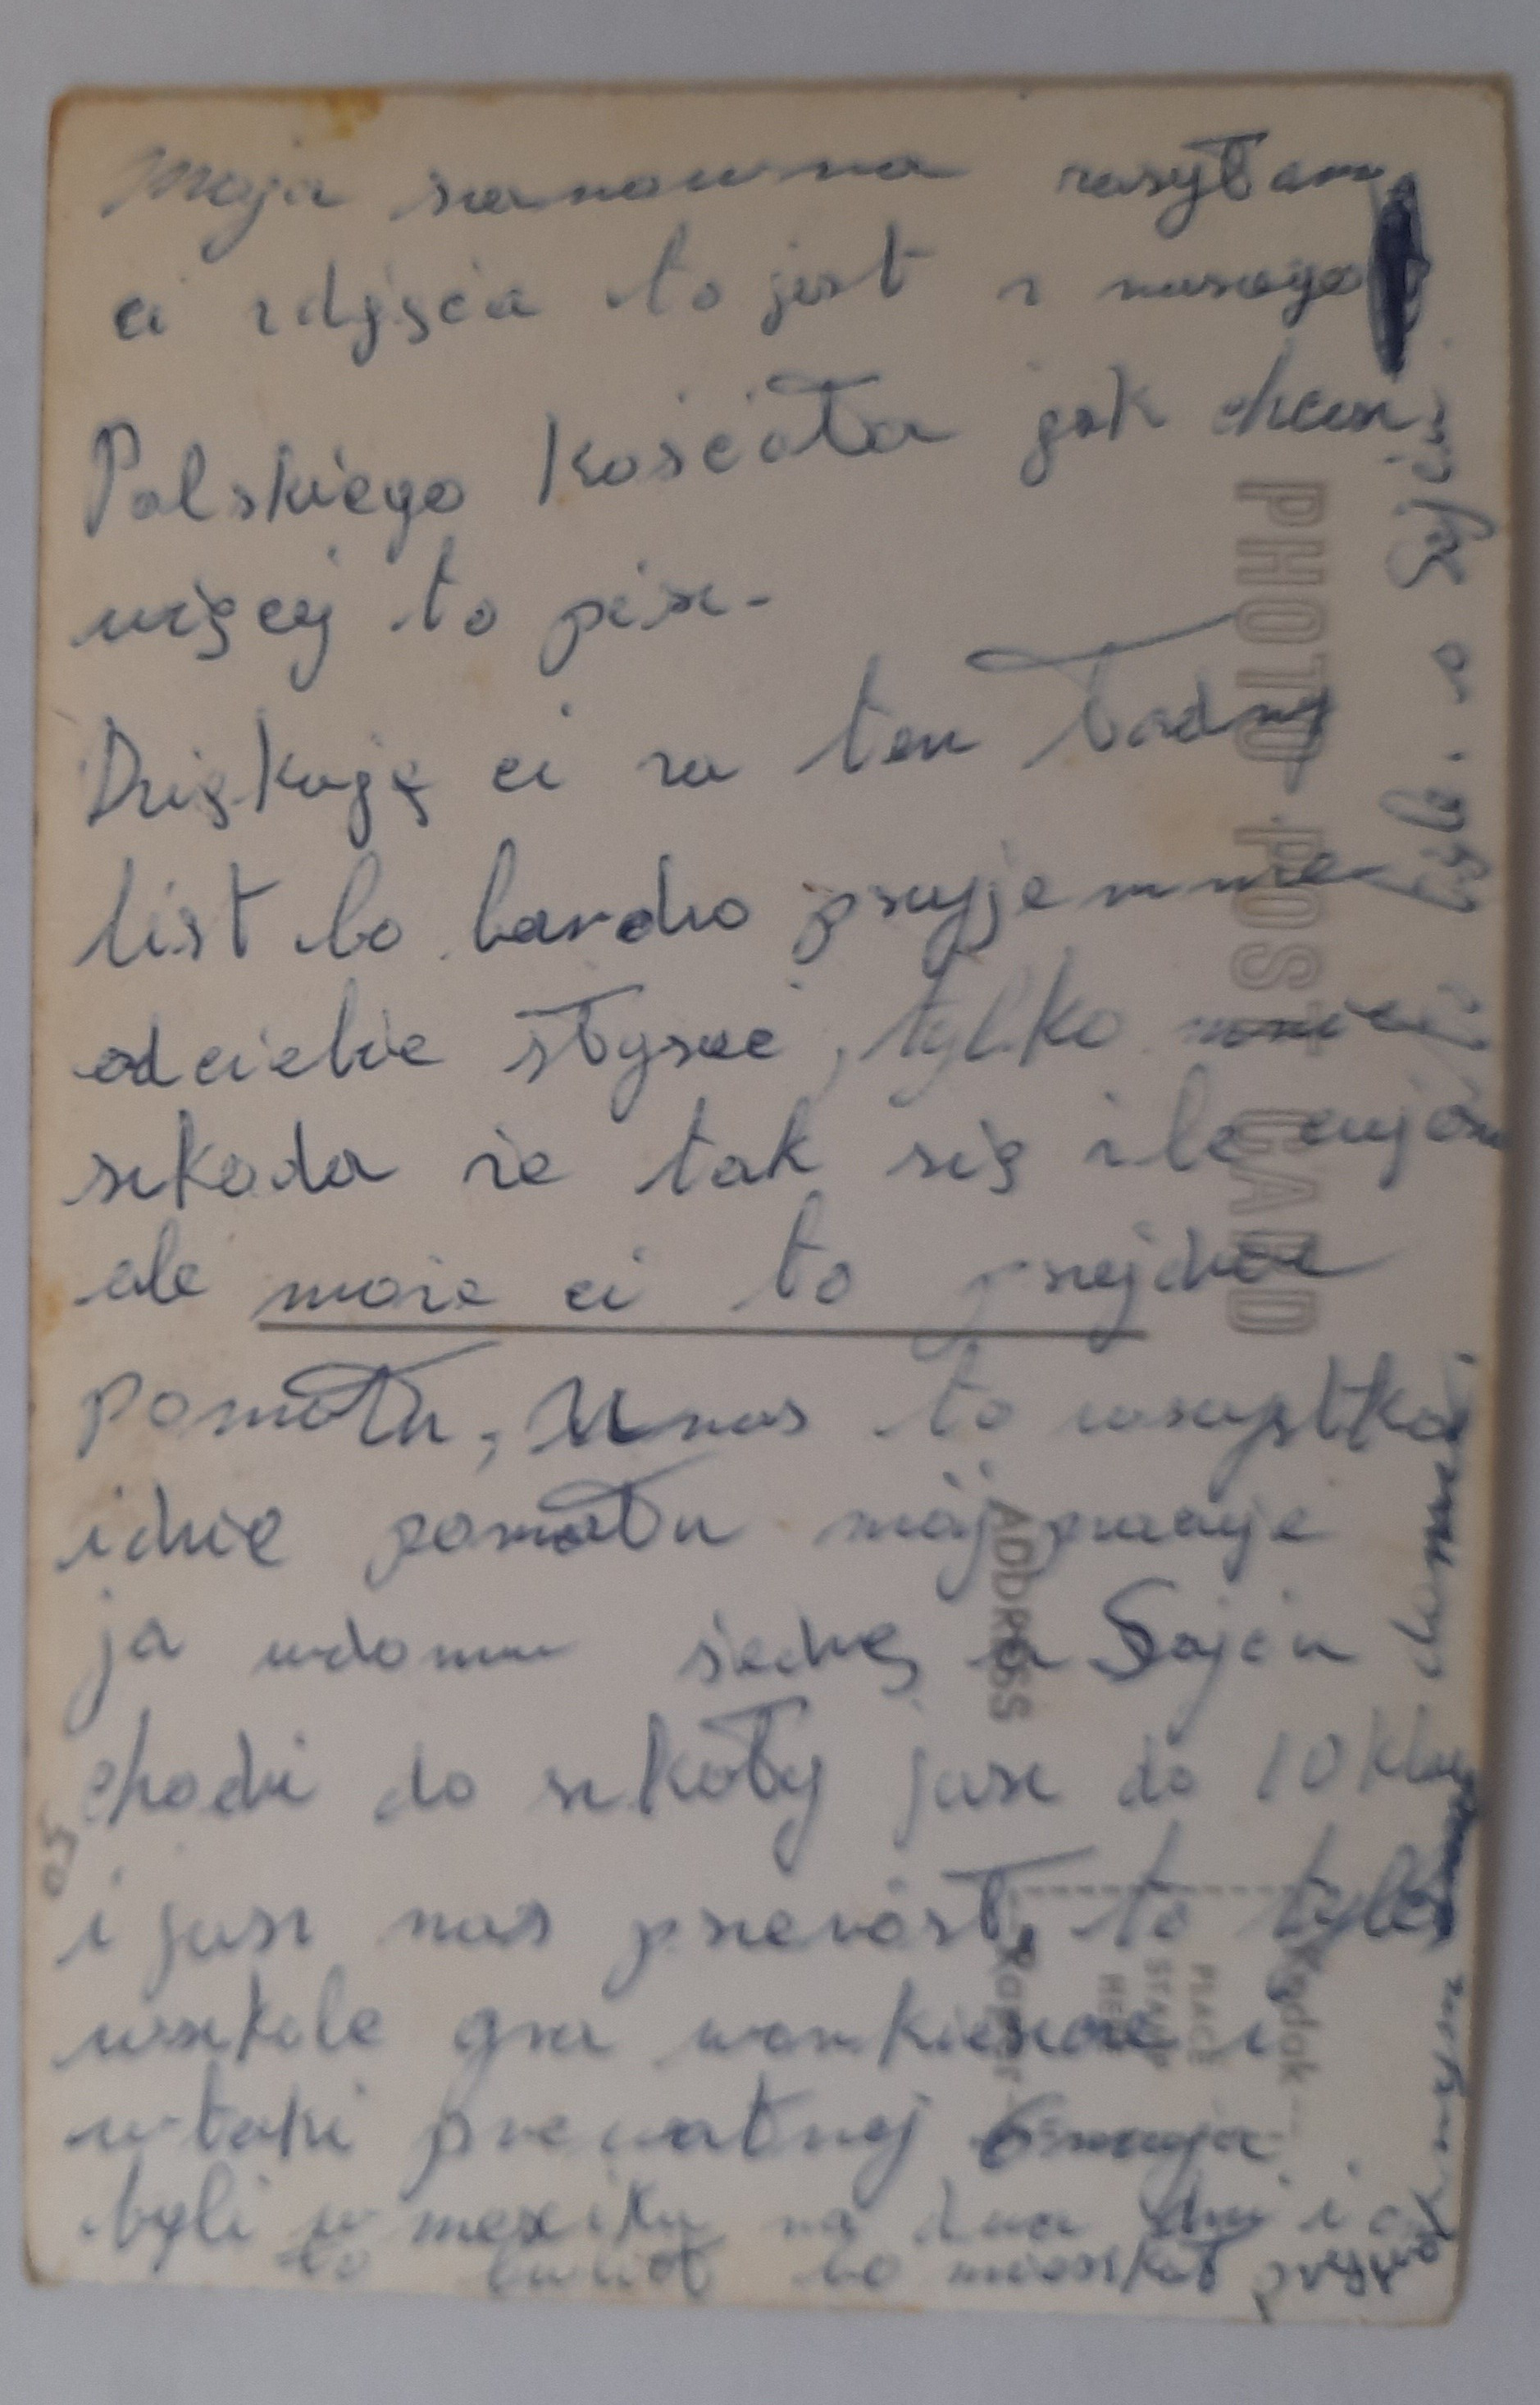 Moja sanowna zasyłam
ci zdjęcia to jest z naszego
Polskiego Kościoła jak chcesz
więcej to pisz-
Dziękuję ci za ten Ładny
list bo bardzo przyjemnie
od ciebie słyszeć, tylko
szkoda że tak się źle czujesz
ale może ci to przejdzie
pomału, U nas to wszystko
idzie pomału mój pracuje
ja w domu siedzę a Sajcu
chodzi do szkoły jusz do 10 klasy
i jusz nas przerósł, to tyle
w szkole gra w orkiestrze i
w taki prewatnej
byli w mexiku na dwa dni i
to bo mieszkał przy
PHOTO POST CARD
ADDRESS
PLACE
STAMP
HERE
Kodak
Paper
05